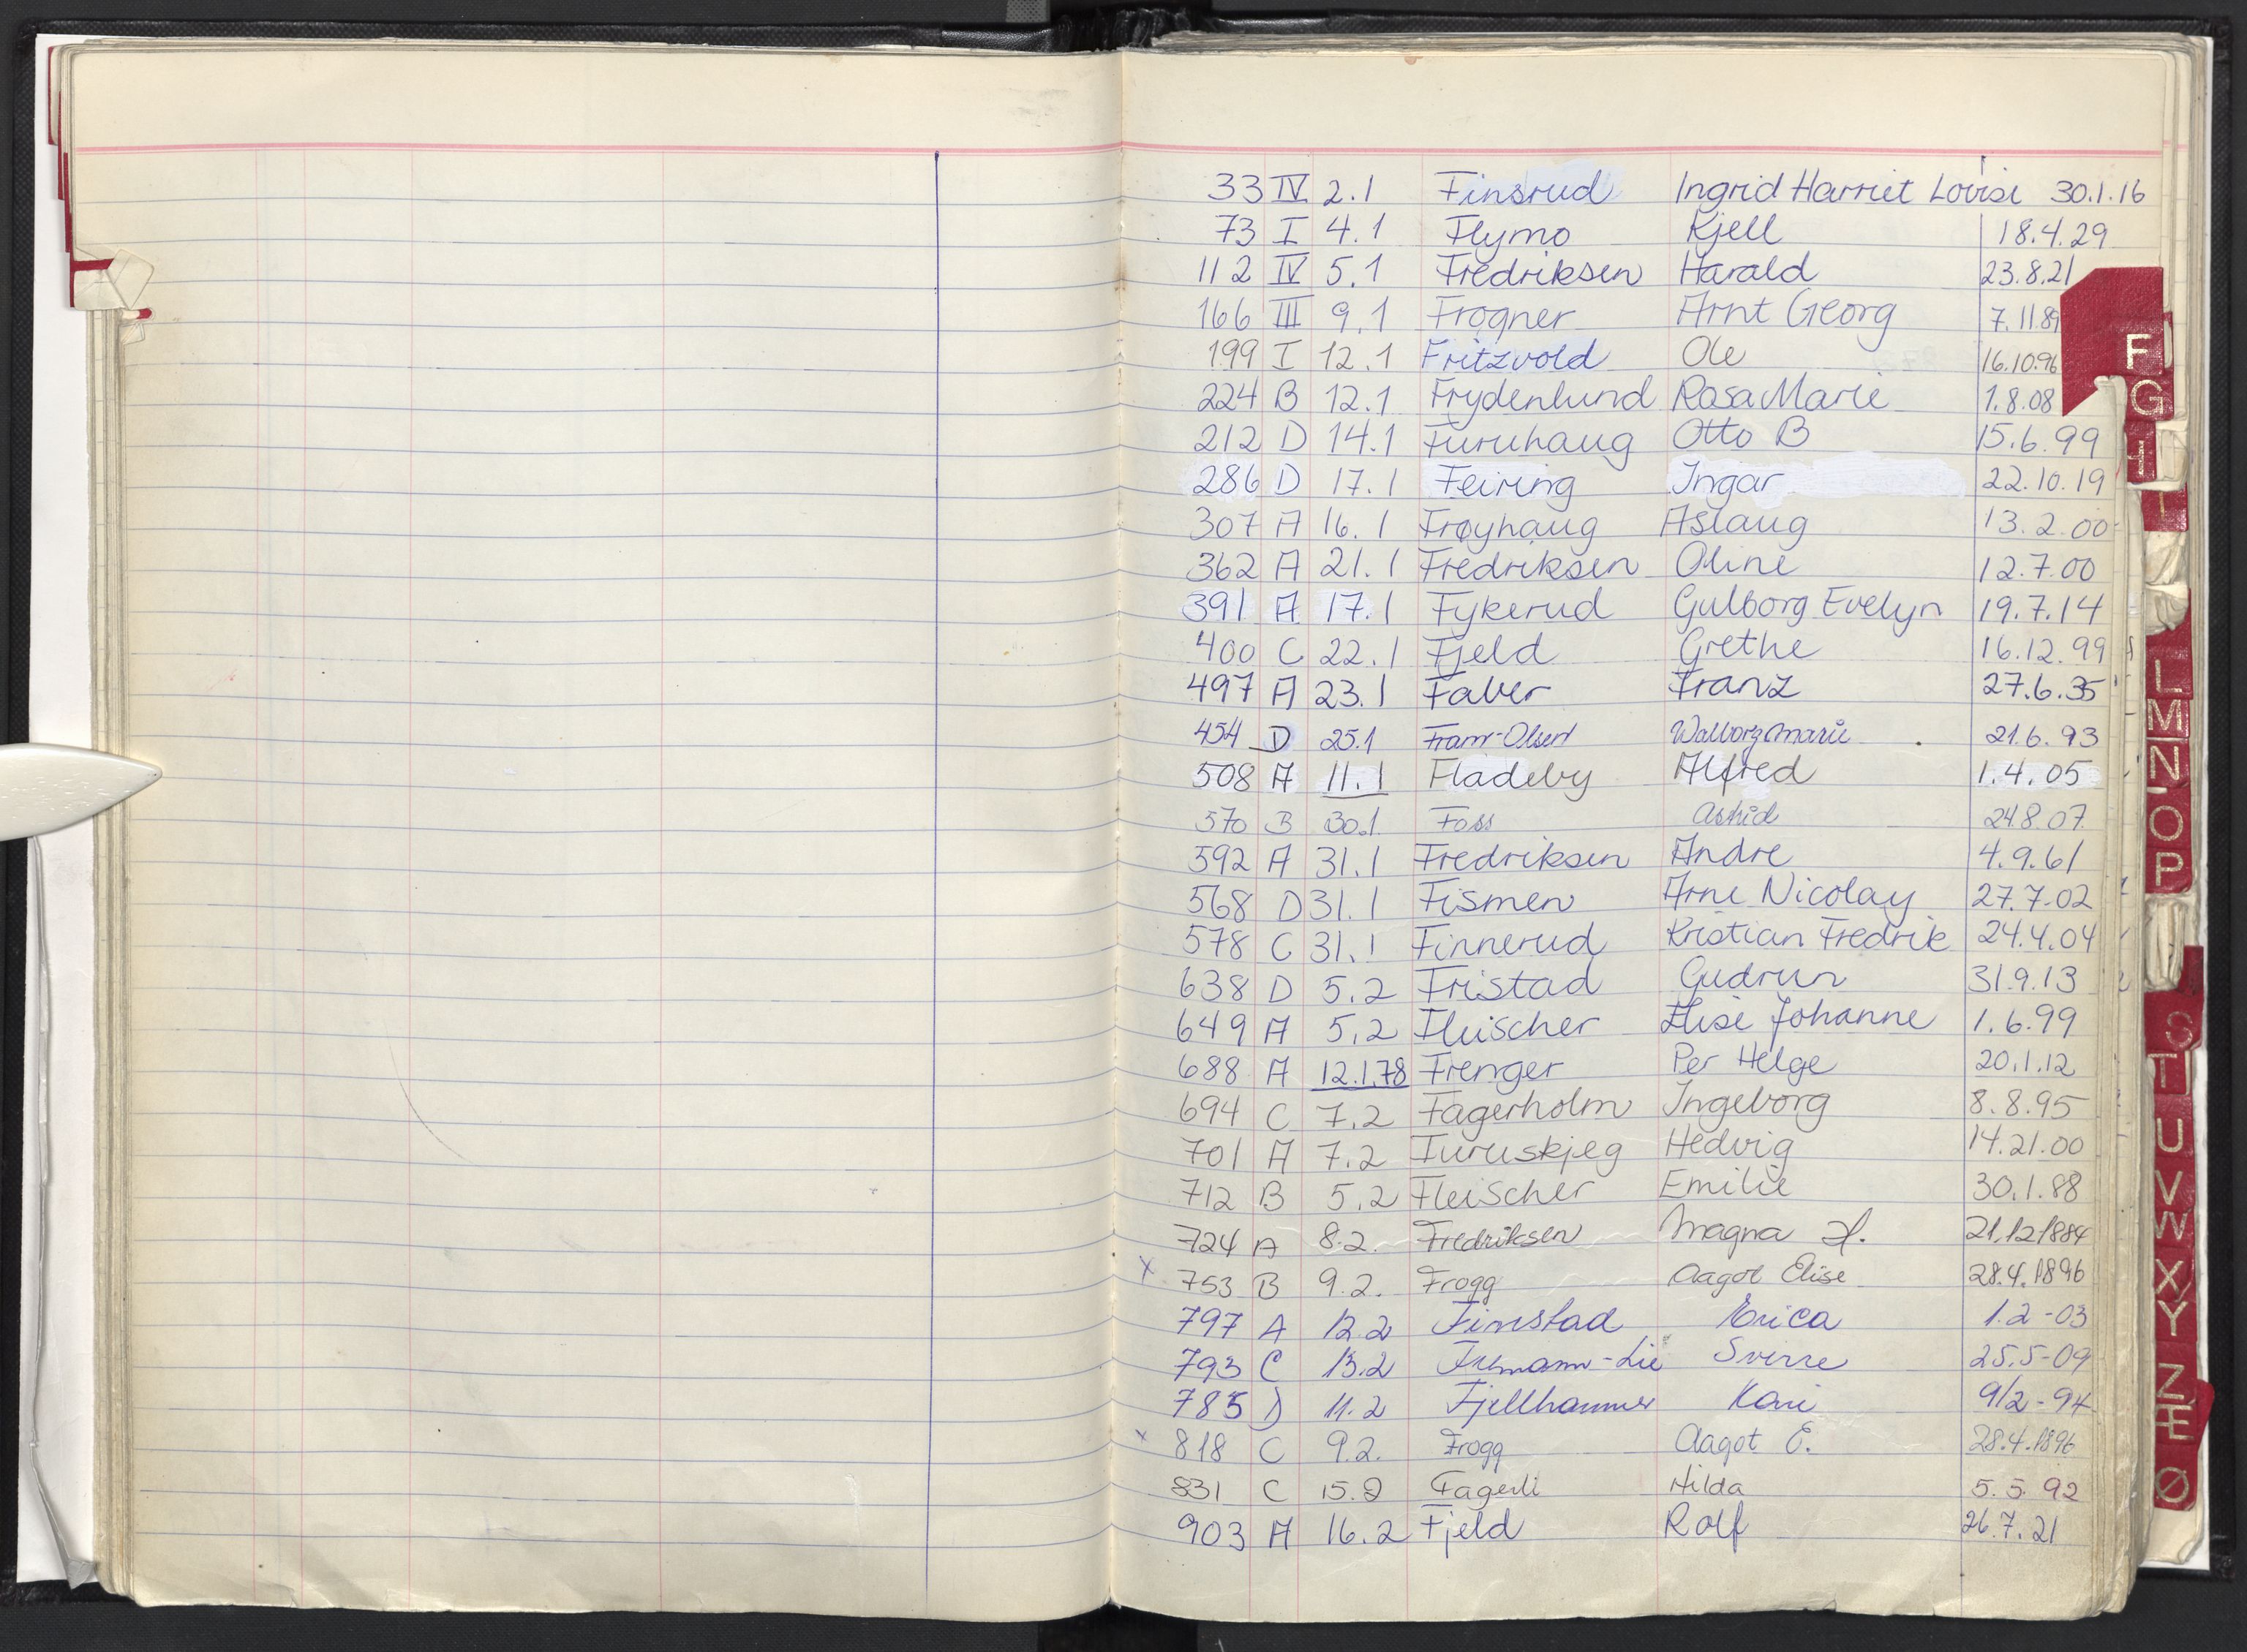 33 IV 2.1 Finsrud Ingrid Harriet Lovise 30.1.16
73 I 4.1 Flymo Kjell 18.4.29
112 IV 5.1 Fredriksen Harald 23.8.21
166 III 9.1 Frogner Arnt Georg 7.11.89
199 I 12.1 Fritzvold Ole 16.10.96
224 B 12.1 Frydenlund Rosa Marie 1.8.08
212 D 14.1 Furuhaug Otto B 15.6.99
286 D 17.1 Feiring Ingar 22.10.19
307 A 16.1 Frøyhaug Aslaug 13.2.00
362 A 21.1 Fredriksen Oline 12.7.00
391 A 17.1 Fykerud Gulborg Evelyn 19.7.14
400 C 22.1 Fjeld Grethe 16.12.99
497 A 23.1 Faber Franz 27.6.35
454 D 25.1 Fram-Olsen Walborg Marie 21.6.93
508 A 11.1 Fladeby Alfred 1.4.05
570 B 30.1 Foss Astrid 24.8.07
592 A 31.1 Fredriksen Andre 4.9.61
568 D 31.1 Fismen Arne Nicolay 27.7.02
578 C 31.1 Finnerud Kristian Fredrik 24.4.04
638 D 5.2 Fristad Gudrun 31.9.13
649 A 5.2 Fleischer Elise Johanne 1.6.99
688 A 12.1.78 Frenger Per Helge 20.1.12
694 C 7.2 Fagerholm Ingeborg 8.8.95
701 A 7.2 Furuskjeg Hedvig 14.21.00
712 B 5.2 Fleischer Emilie 30.1.88
724 A 8.2. Fredriksen Magna H. 21.12.1884
x 753 B 9.2. Frogg Aagot Elise 28.4.1896
797 A 12.2 Finstad Erica 1.2-03
793 C 13.2 Sverre 25.5-09
785 D 11.2 Fjellhammer Kari 9/2-94
x 818 C 9.2. Frogg Aagot E. 28.4.1896
831 C 15.2 Fagerli Hilda 5.5.92
903 A 16.2 Fjeld Rolf 26.7.21
F
G
L
M
N
O
P
S
T
U
V
W
X
Y
Z
Æ
Ø